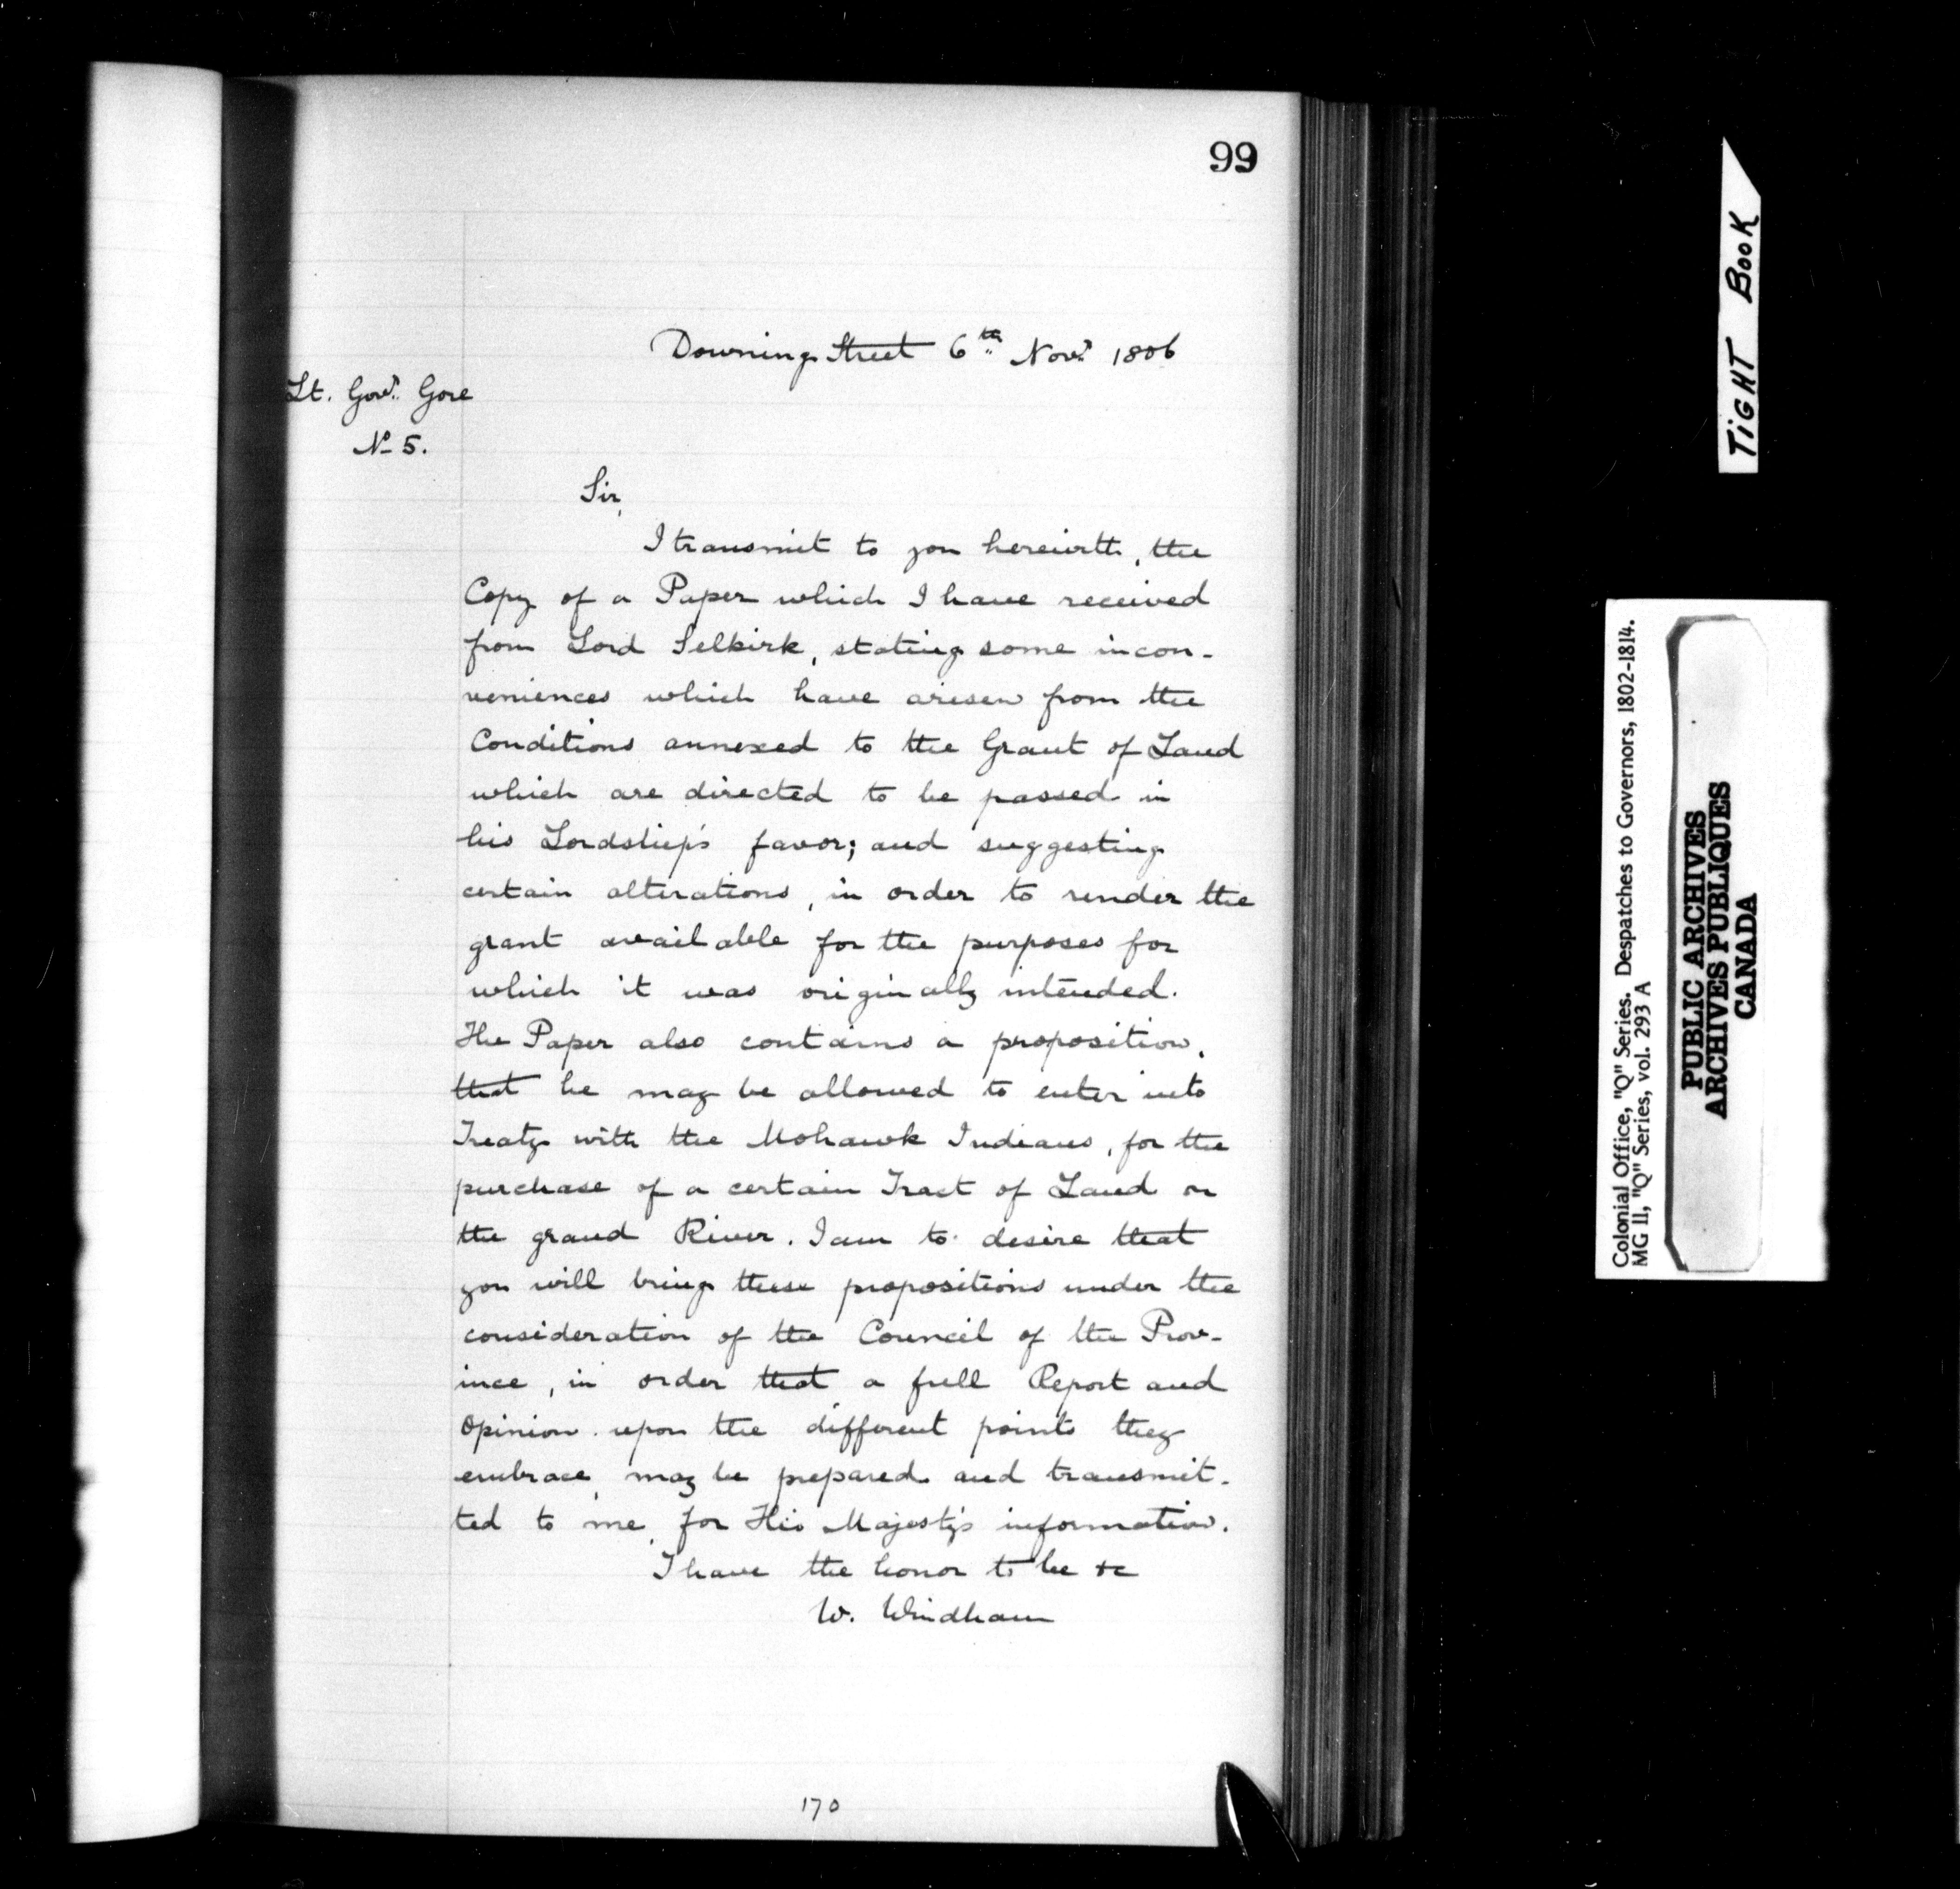 99
Downing Street 6th Novr 1806
Lt. Govr. Gore
No 5.
Sir,
I transmit to you herewith, the
Copy of a Paper which I have received
from Lord Selkirk, stating some incon-
veniences which have arisen from the
Conditions annexed to the Grant of Land
which are directed to be passed in
his Lordship's favor; and suggesting
certain alterations, in order to render the
grant available for the purposes for
which it was originally intended.
The Paper also contains a proposition,
that he may be allowed to enter into
Treaty with the Mohawk Indians, for the
purchase of a certain Tract of Land on
the grand River. I am to desire that
you will bring these propositions under the
consideration of the Council of the Prov-
ince, in order that a full Report and
Opinion upon the different points they
embrace, may be prepared and transmit-
ted to me, for His Majesty's information.
I have the honor to be &c
W. Windham
170
TIGHT BOOK
Colonial Office, "Q" Series. Despatches to Governors, 1802-1814.
MG 11, "Q" Series, vol. 293 A
PUBLIC ARCHIVES
ARCHIVES PUBLIQUES
CANADA